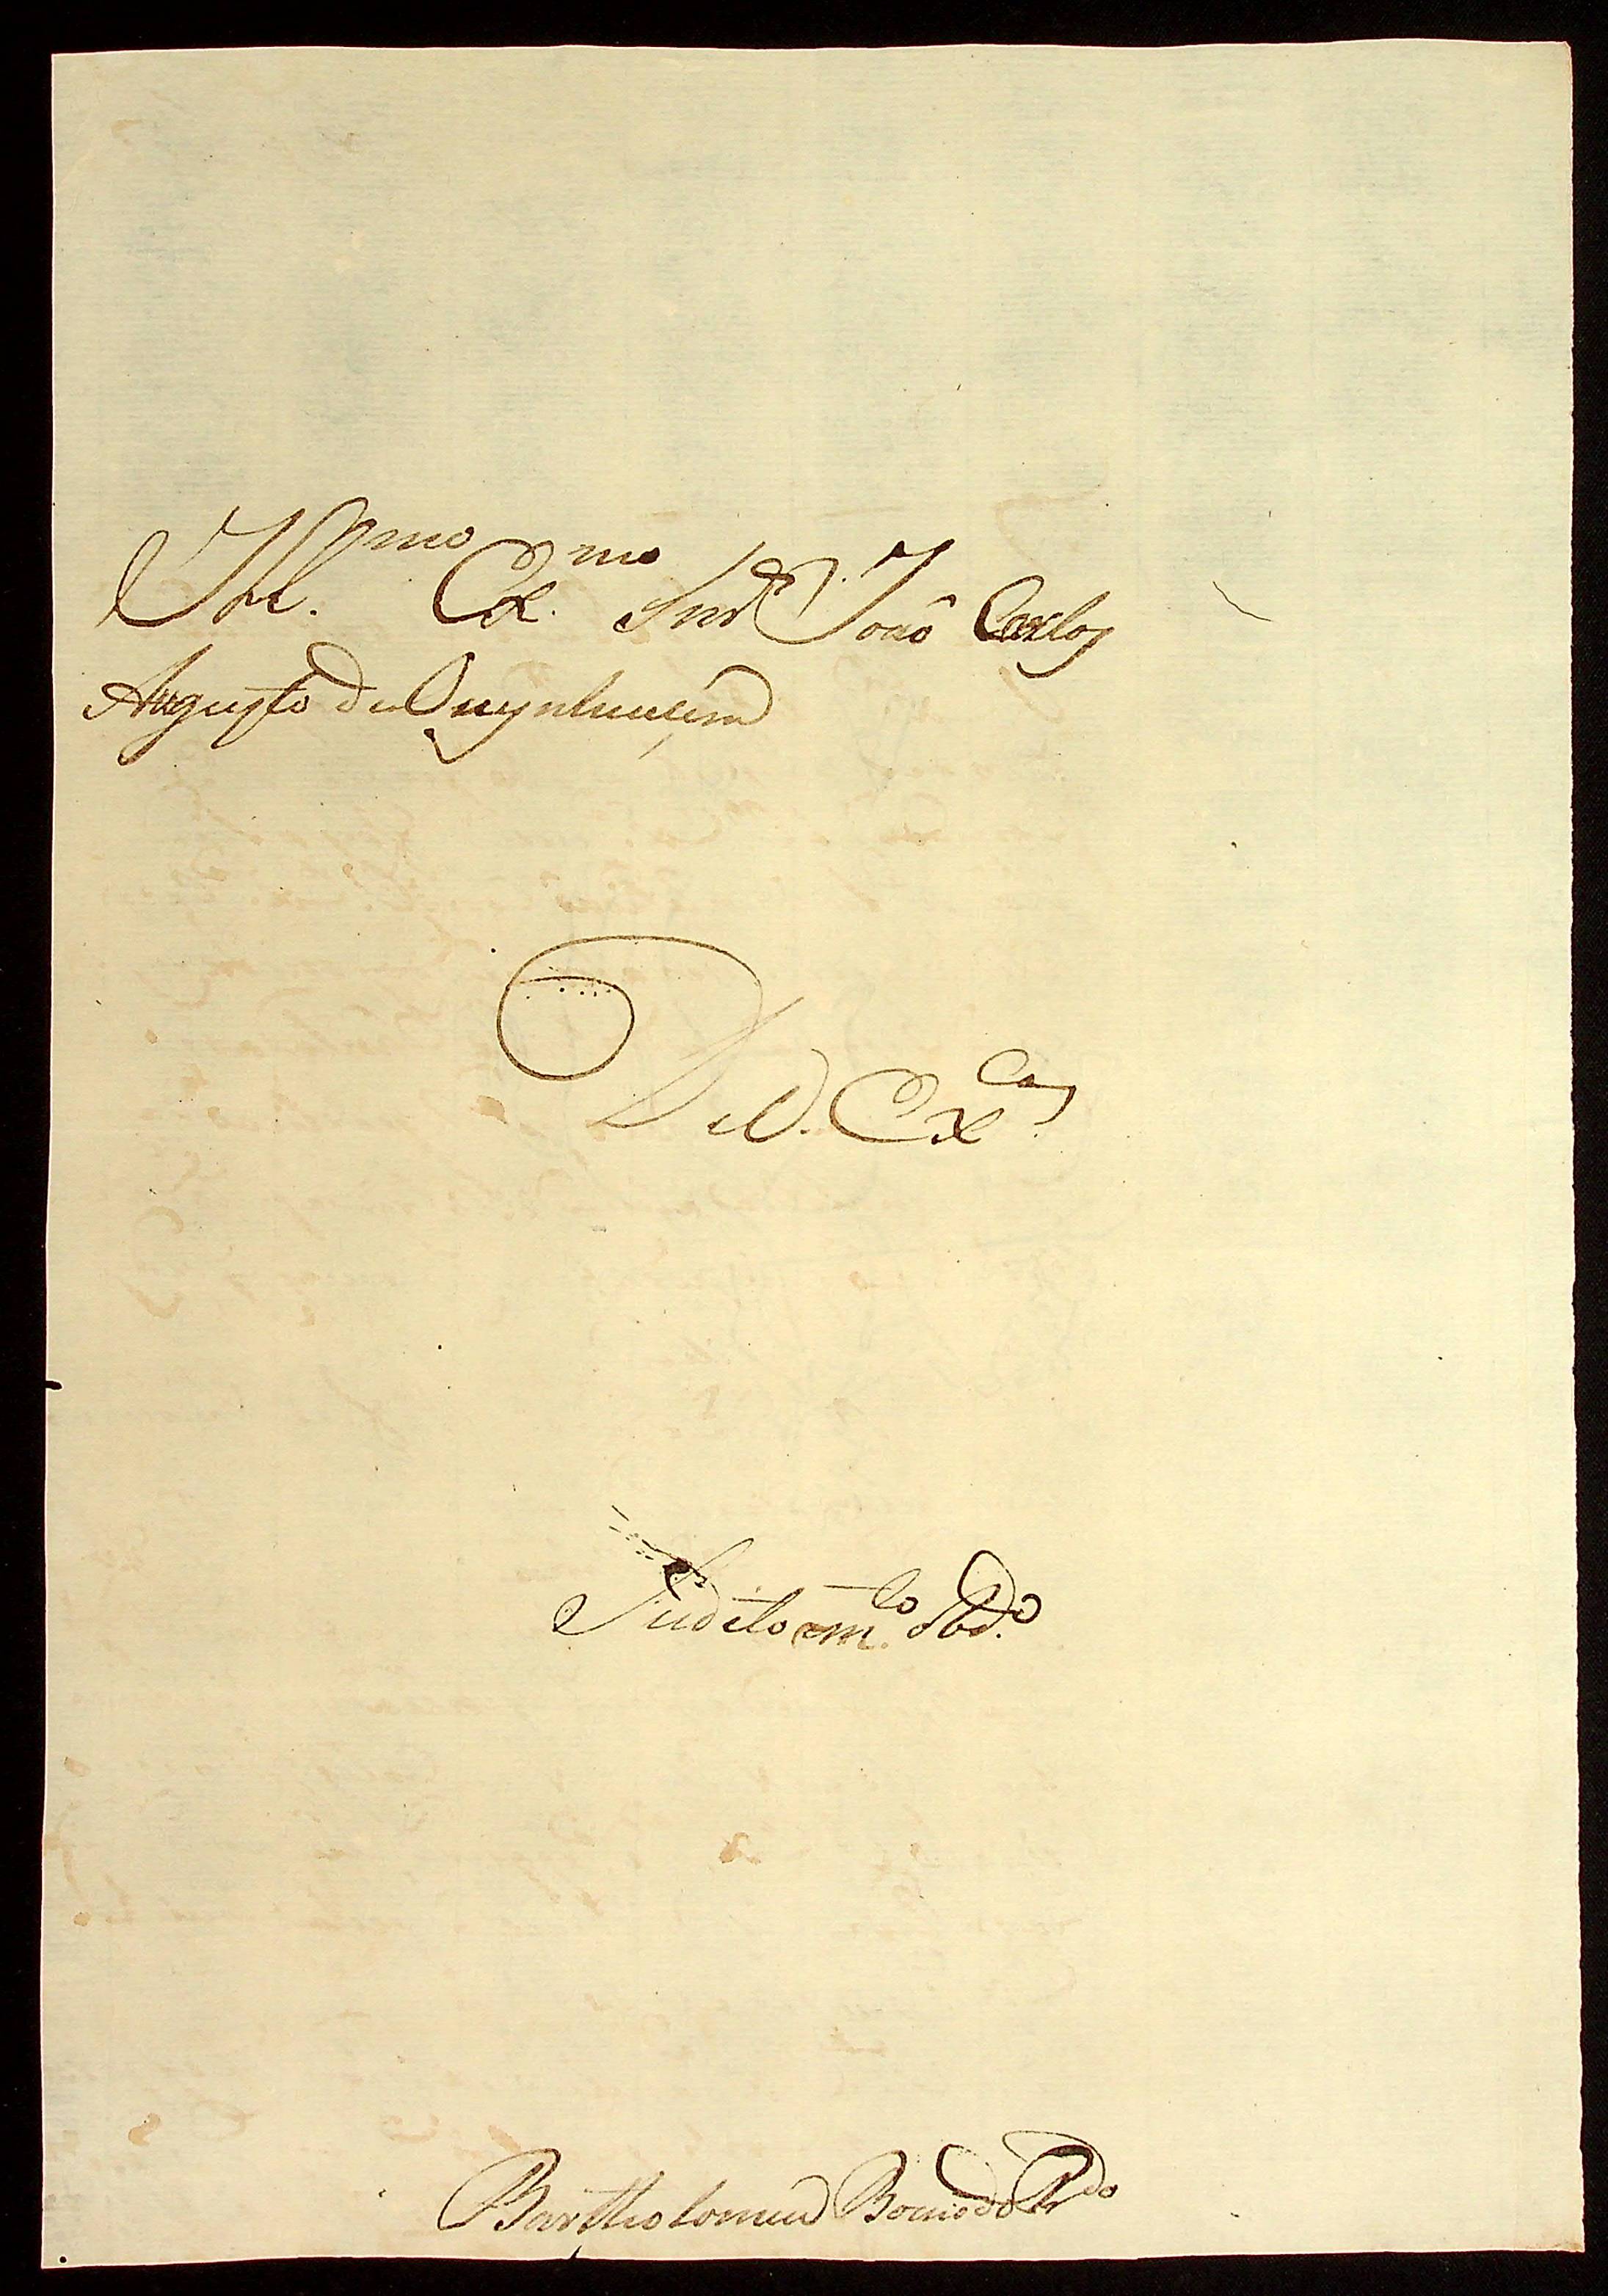 Ill.mo Ex.mo Snr. João Carlos
Augusto de Oeynhausem
De V. Ex.Cas
Subdito m.to Obd.o
Bartholomeu Bueno do Pr.do